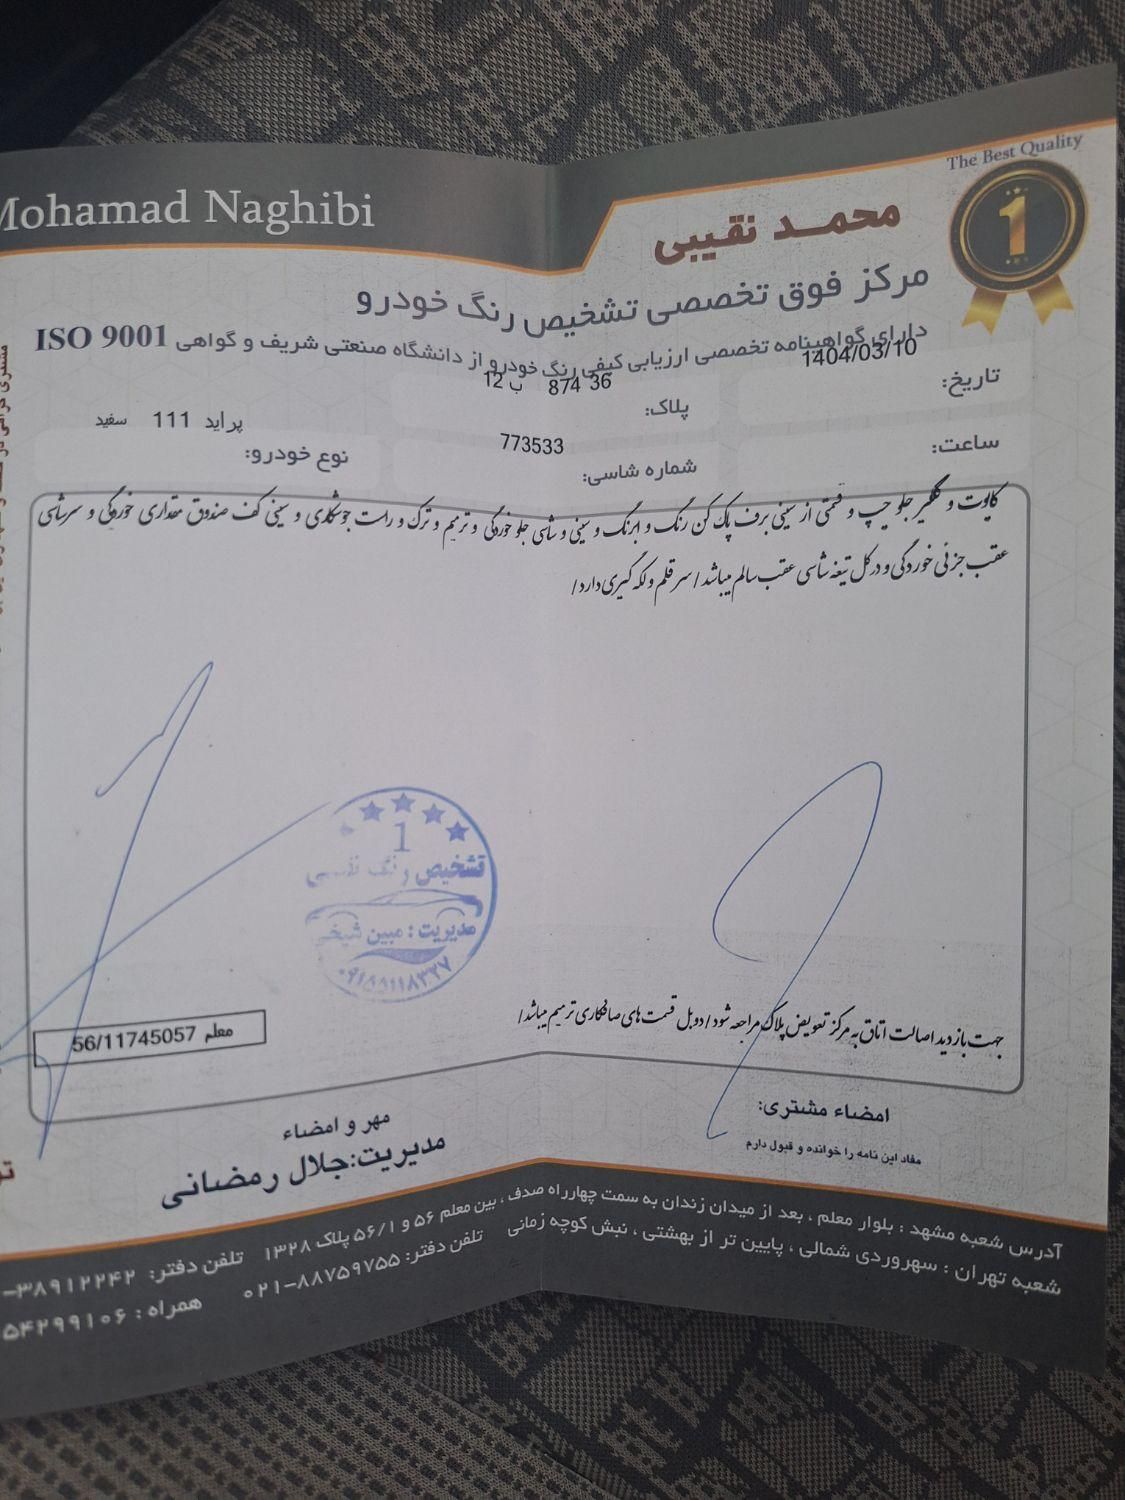 The Best Quality
1
Mohamad Naghibi
محمد نقیبی
مرکز فوق تخصصی تشخیص رنگ خودرو
دارای گواهینامه تخصصی ارزیابی کیفی رنگ خودرو از دانشگاه صنعتی شریف و گواهی ISO 9001
تاریخ: 1404/03/10
پلاک: 36 874 ب 12
پراید 111 سفید
ساعت:
شماره شاسی: 773533
نوع خودرو:
کاپوت و گلگیر جلو چپ و قسمتی از سینی برف پاک کن رنگ و ابرنگ و سینی و شاسی جلو خوردگی و ترمیم و ترک و راست جوشکاری و سینی کف صندوق مقداری خوردگی و سرشاسی
عقب جزئی خوردگی و درکل تیغه شاسی عقب سالم میباشد / سر قلم و لکه گیری دارد /
1
تشخیص رنگ نقیبی
مدیریت: مبین شیخی
۰۹۱۵۵۱۱۸۳۲۷
جهت بازدید اصالت اتاق به مرکز تعویض پلاک مراجعه شود / دوبل قسمت های صافکاری ترمیم میباشد /
معلم 56/11745057
امضاء مشتری:
مفاد این نامه را خوانده و قبول دارم
مهر و امضاء
مدیریت:جلال رمضانی
آدرس شعبه مشهد : بلوار معلم ، بعد از میدان زندان به سمت چهارراه صدف ، بین معلم ۵۶ و ۵۶/۱ پلاک ۱۳۲۸ تلفن دفتر: ۳۸۹۱۲۲۴۲-
شعبه تهران : سهروردی شمالی ، پایین تر از بهشتی ، نبش کوچه زمانی تلفن دفتر: ۸۸۷۵۹۷۵۵-۰۲۱ همراه : ۵۴۲۹۹۱۰۶